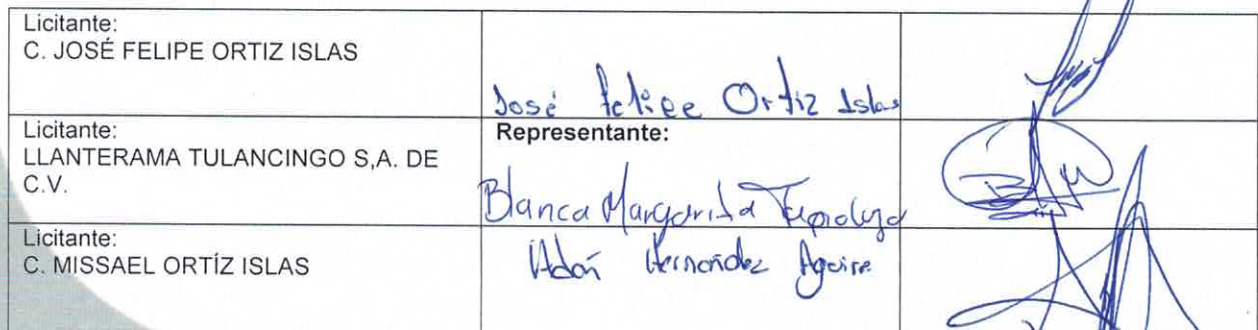 Licitante:
C. JOSÉ FELIPE ORTIZ ISLAS
José Felipe Ortiz Islas
Licitante:
LLANTERAMA TULANCINGO S,A. DE
C.V.
Representante:
Blanca Margarita
Licitante:
C. MISSAEL ORTÍZ ISLAS
Adán Hernández Aguirre